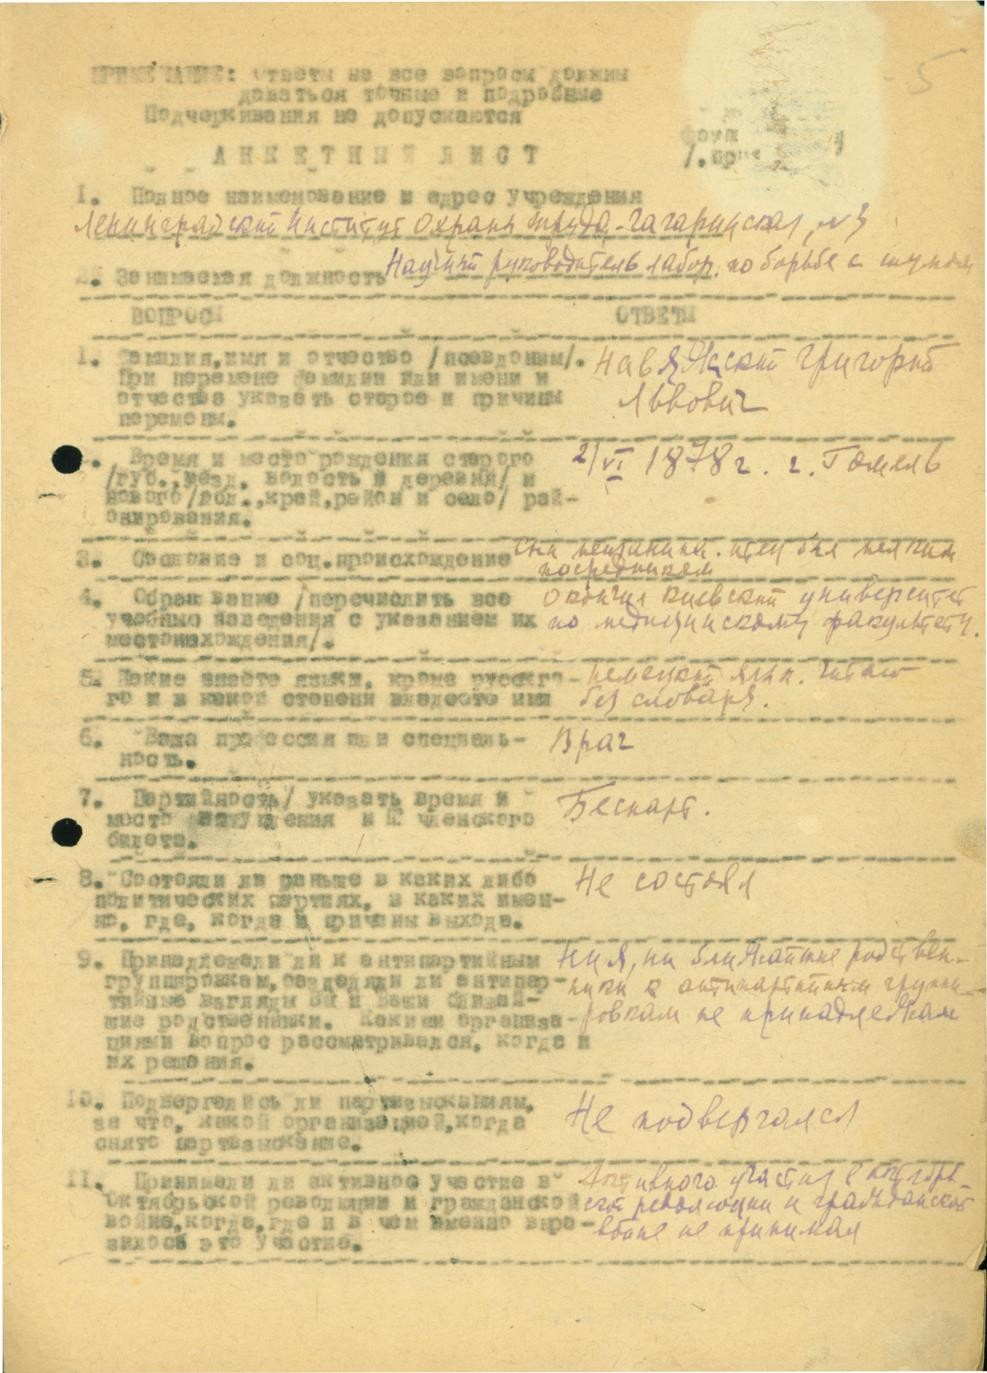 5
ПРИМЕЧАНИЕ: Ответы на все вопросы должны
даваться точные и подробные
Подчеркивания не допускаются
АНКЕТНЫЙ ЛИСТ
1. Полное наименование и адрес учреждения
Ленинградский Институт Охраны Труда - Гагаринская, № 3
2. Занимаемая должность Научный руководитель лабор. по борьбе с шумом
ВОПРОСЫ ОТВЕТЫ
1. Фамилия, имя и отчество /псевдоним/.
При перемене фамилии или имени и
отчества указать старое и причины
перемены.
Навяжский Григорий
Львович
Время и место рождения старого
/губ., уезд, волость и деревня/ и
нового /обл., край, район и село/ рай-
онирования.
2/VI 1878 г. г. Гомель
3. Сословие и соц.происхождение
Сын мещанина. Отец был мелким
посредником
4. Образование /перечислить все
учебные заведения с указанием их
местонахождения/.
Окончил Киевский университет
по медицинскому факультету.
5. Какие знаете языки, кроме русско-
го и в какой степени владеете ими
немецкий язык. Читаю
без словаря.
6. Ваша профессия или специаль-
ность.
Врач
7. Партийность/ указать время и
место вступления и № членского
билета.
Беспарт.
8. Состояли ли раньше в каких либо
политических партиях, в каких имен-
но, где, когда и причины выхода.
Не состоял
9. Принадлежали ли к антипартийным
группировкам, разделяли ли антипар-
тийные взгляды Вы и Ваши ближай-
шие родственники. Какими организа-
циями вопрос рассматривался, когда и
их решения.
Ни я, ни ближайшие родствен-
ники к антипартийным группи-
ровкам не принадлежали
10. Подвергались ли партвзысканиям,
за что, какой организацией, когда
снято партвзыскание.
Не подвергался
11. Принимали ли активное участие в
Октябрьской революции и гражданской
войне, когда, где и в чем именно выра-
зилось это участие.
Активного участия в октябрь-
ской революции и гражданской
войне не принимал